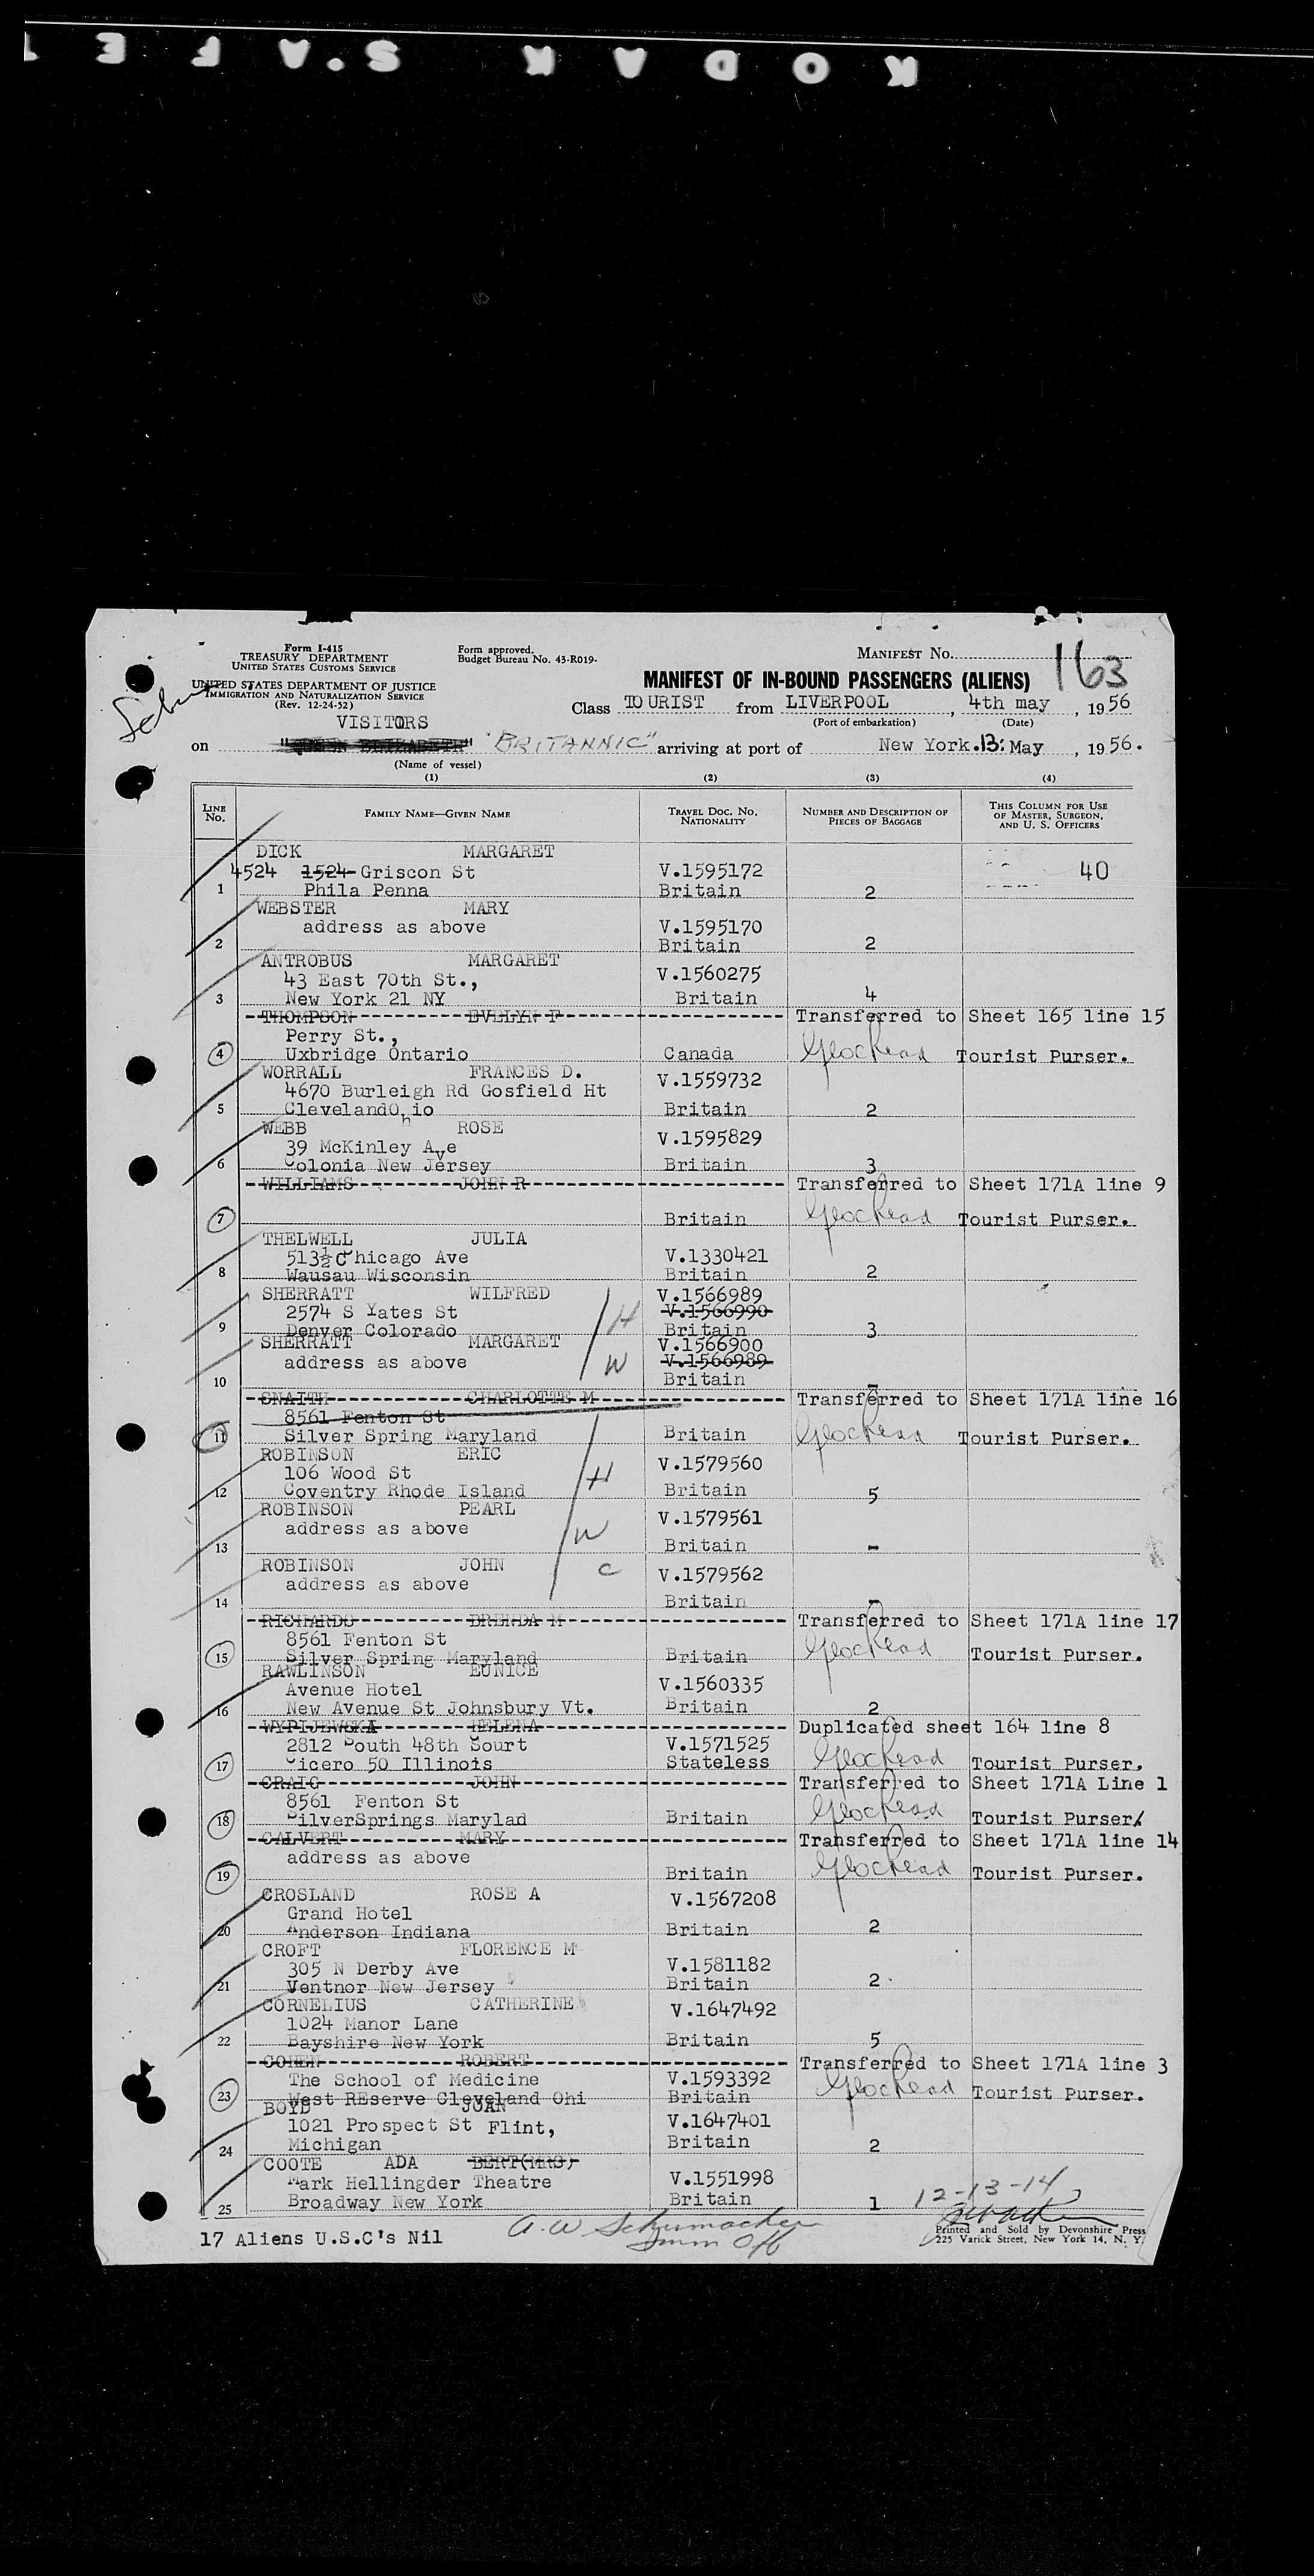 KODAK S.A F E
Form I-415
TREASURY DEPARTMENT
UNITED STATES CUSTOMS SERVICE
UNITED STATES DEPARTMENT OF JUSTICE
IMMIGRATION AND NATURALIZATION SERVICE
(Rev. 12-24-52)
Form approved.
Budget Bureau No. 43-R019-
MANIFEST NO. 163
MANIFEST OF IN-BOUND PASSENGERS (ALIENS)
Class TOURIST from LIVERPOOL, 4th may, 1956
(Port of embarkation) (Date)
VISITORS
on "QUEEN ELIZABETH" "BRITANNIC" arriving at port of New York.13: May, 1956.
(Name of vessel)
(1) (2) (3) (4)
LINE NO. FAMILY NAME—GIVEN NAME TRAVEL DOC. NO. NATIONALITY NUMBER AND DESCRIPTION OF PIECES OF BAGGAGE THIS COLUMN FOR USE OF MASTER, SURGEON, AND U. S. OFFICERS
DICK MARGARET
4524 1524 Griscon St V.1595172 40
1 Phila Penna Britain 2
WEBSTER MARY
address as above V.1595170
2 Britain 2
ANTROBUS MARGARET
43 East 70th St., V.1560275
3 New York 21 NY Britain 4
THOMPSON EVELYN F Transferred to Sheet 165 line 15
Perry St.,
4 Uxbridge Ontario Canada Tourist Purser.
WORRALL FRANCES D.
4670 Burleigh Rd Gosfield Ht V.1559732
5 ClevelandOhio Britain 2
WEBB ROSE
39 McKinley Ave V.1595829
6 Colonia New Jersey Britain 3
WILLIAMS JOHN R Transferred to Sheet 171A line 9
7 Britain Tourist Purser.
THELWELL JULIA
513½ Chicago Ave V.1330421
8 Wausau Wisconsin Britain 2
SHERRATT WILFRED V.1566989
2574 S Yates St H V.1566990
9 Denver Colorado Britain 3
SHERRATT MARGARET V.1566900
address as above W V.1566989
10 Britain -
SNAITH CHARLOTTE M Transferred to Sheet 171A line 16
8561 Fenton St
11 Silver Spring Maryland Britain Tourist Purser.
ROBINSON ERIC
106 Wood St H V.1579560
12 Coventry Rhode Island Britain 5
ROBINSON PEARL
address as above W V.1579561
13 Britain -
ROBINSON JOHN
address as above C V.1579562
14 Britain -
RICHARDS BRENDA M Transferred to Sheet 171A line 17
8561 Fenton St
15 Silver Spring Maryland Britain Tourist Purser.
RAWLINSON EUNICE
Avenue Hotel V.1560335
16 New Avenue St Johnsbury Vt. Britain 2
WYPIJEWSKA HELENA Duplicated sheet 164 line 8
2812 South 48th Court V.1571525
17 Cicero 50 Illinois Stateless Tourist Purser.
CRAIG JOHN Transferred to Sheet 171A Line 1
8561 Fenton St
18 SilverSprings Marylad Britain Tourist Purser/
CALVERT MARY Transferred to Sheet 171A line 14
address as above
19 Britain Tourist Purser.
CROSLAND ROSE A
Grand Hotel V.1567208
20 Anderson Indiana Britain 2
CROFT FLORENCE M
305 N Derby Ave V.1581182
21 Ventnor New Jersey Britain 2
CORNELIUS CATHERINE
1024 Manor Lane V.1647492
22 Bayshire New York Britain 5
COHEN ROBERT Transferred to Sheet 171A line 3
The School of Medicine V.1593392
23 West REserve Cleveland Ohi Britain Tourist Purser.
BOYD JOAN
1021 Prospect St Flint, V.1647401
24 Michigan Britain 2
COOTE ADA BERT(MRS)
Mark Hellingder Theatre V.1551998
25 Broadway New York Britain 1 12-13-14
17 Aliens U.S.C's Nil
A. W Schumacher
Imm Off
Printed and Sold by Devonshire Press
225 Varick Street, New York 14, N. Y.